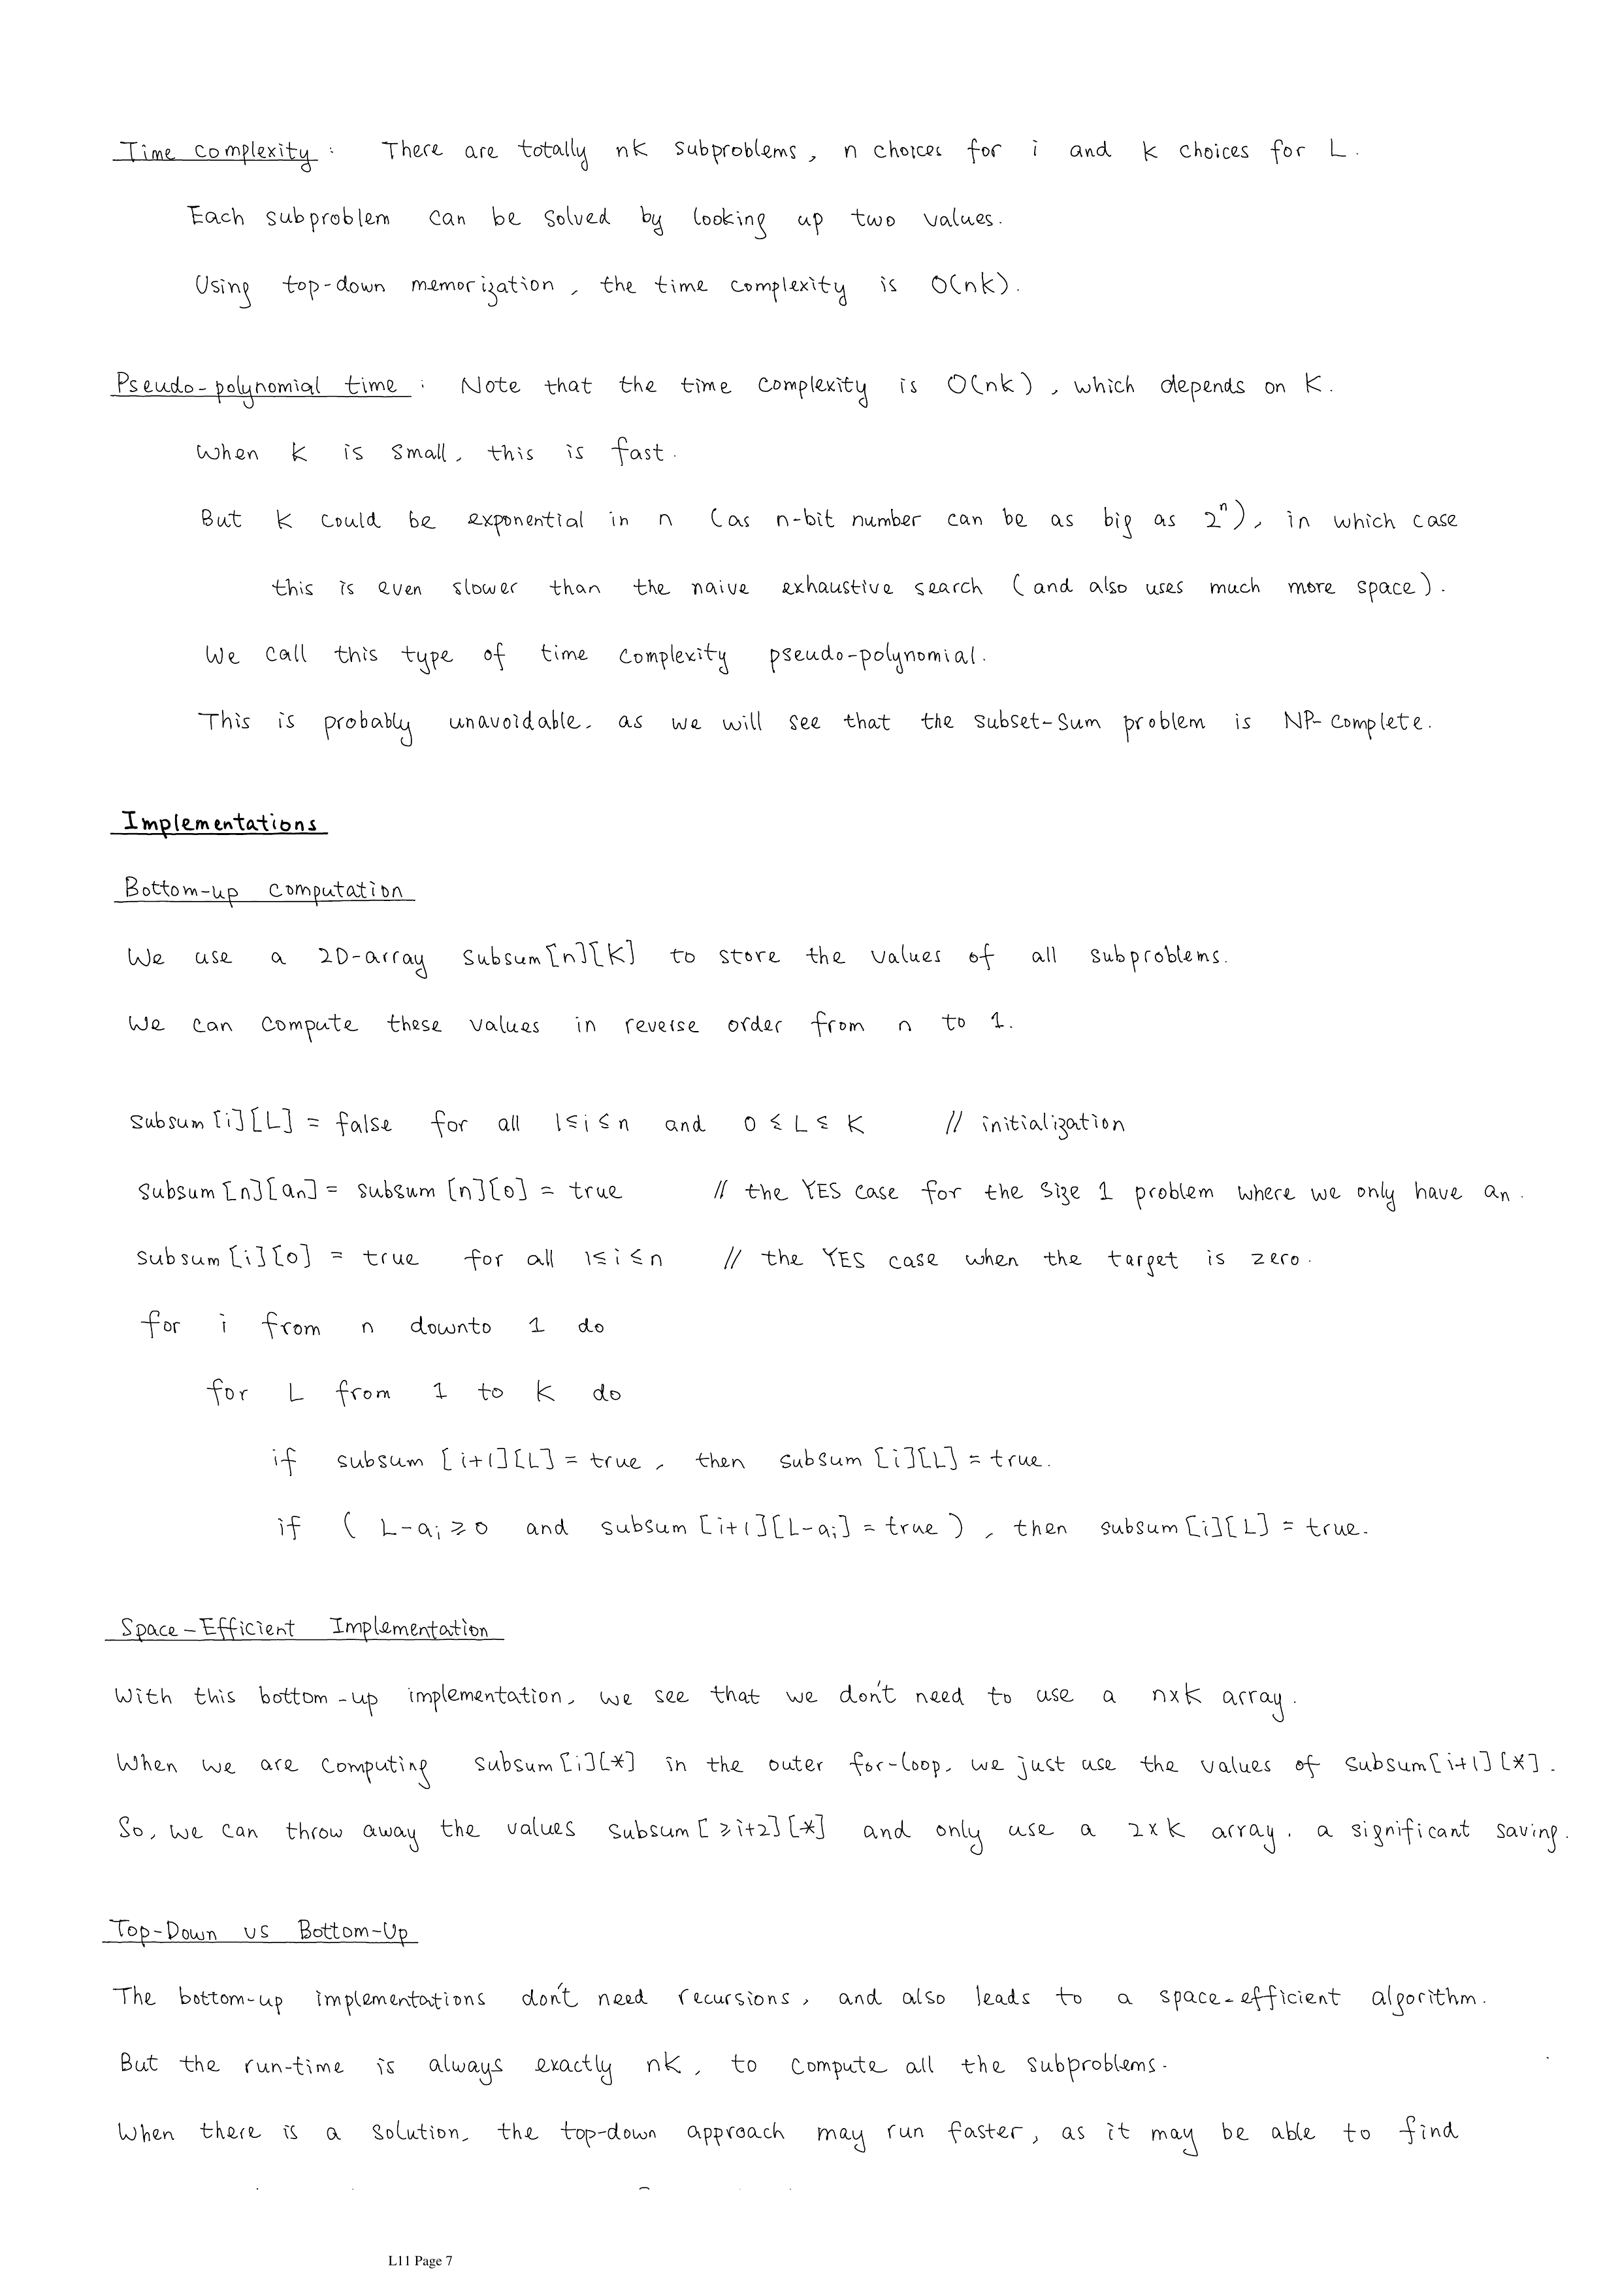 Time complexity : There are totally nK subproblems, n choices for i and K choices for L.
Each subproblem can be solved by looking up two values.
Using top-down memorization, the time complexity is O(nK).
Pseudo-polynomial time : Note that the time complexity is O(nK), which depends on K.
When K is small, this is fast.
But K could be exponential in n (as n-bit number can be as big as 2ⁿ), in which case
this is even slower than the naive exhaustive search (and also uses much more space).
We call this type of time complexity pseudo-polynomial.
This is probably unavoidable, as we will see that the subset-sum problem is NP-complete.
Implementations
Bottom-up computation
We use a 2D-array subsum[n][K] to store the values of all subproblems.
We can compute these values in reverse order from n to 1.
subsum[i][L] = false for all 1≤i≤n and 0≤L≤K // initialization
subsum[n][aₙ] = subsum[n][0] = true // the YES case for the size 1 problem where we only have aₙ.
subsum[i][0] = true for all 1≤i≤n // the YES case when the target is zero.
for i from n downto 1 do
for L from 1 to K do
if subsum[i+1][L] = true, then subsum[i][L] = true.
if ( L-aᵢ ≥ 0 and subsum[i+1][L-aᵢ] = true ), then subsum[i][L] = true.
Space-Efficient Implementation
With this bottom-up implementation, we see that we don't need to use a n×K array.
When we are computing subsum[i][*] in the outer for-loop, we just use the values of subsum[i+1][*].
So, we can throw away the values subsum[≥i+2][*] and only use a 2×K array, a significant saving.
Top-Down vs Bottom-Up
The bottom-up implementations don't need recursions, and also leads to a space-efficient algorithm.
But the run-time is always exactly nK, to compute all the subproblems.
When there is a solution, the top-down approach may run faster, as it may be able to find
L11 Page 7